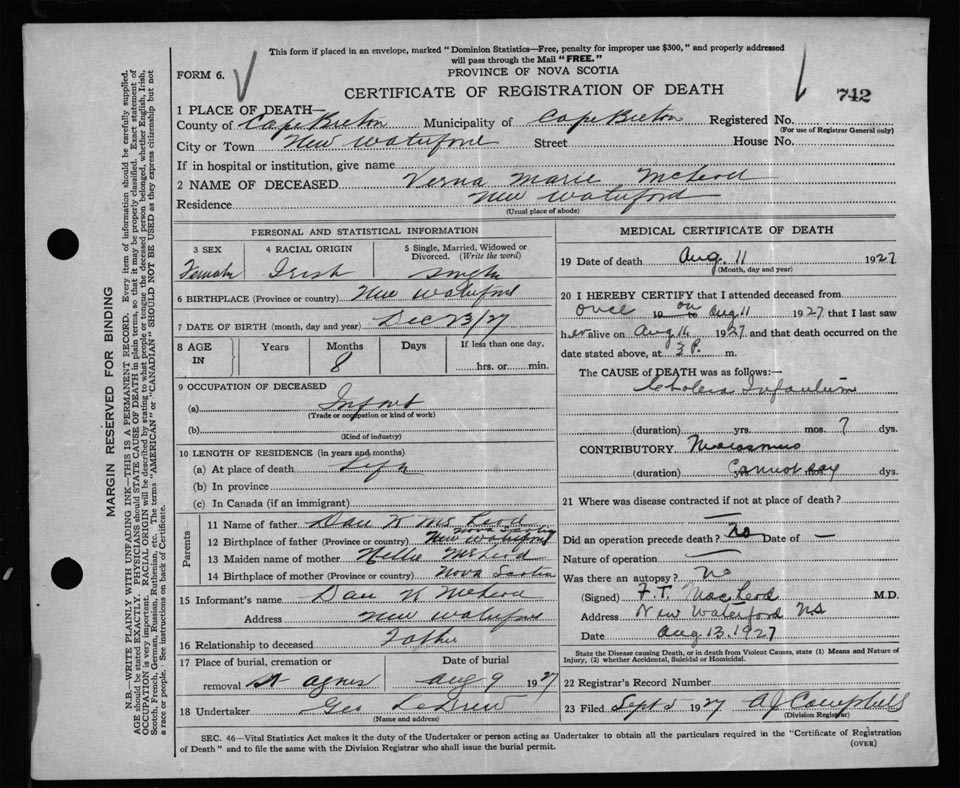 This form if placed in an envelope, marked "Dominion Statistics—Free, penalty for improper use $300," and properly addressed
will pass through the Mail "FREE."
FORM 6.
PROVINCE OF NOVA SCOTIA
CERTIFICATE OF REGISTRATION OF DEATH
742
1 PLACE OF DEATH—
County of Cape Breton Municipality of Cape Breton Registered No.
(For use of Registrar General only)
City or Town New Waterford Street House No.
If in hospital or institution, give name
2 NAME OF DECEASED Verna Marie McLeod
Residence New Waterford
(Usual place of abode)
PERSONAL AND STATISTICAL INFORMATION
3 SEX 4 RACIAL ORIGIN 5 Single, Married, Widowed or Divorced. (Write the word)
Female Irish Single
6 BIRTHPLACE (Province or country) New Waterford
7 DATE OF BIRTH (month, day and year) Dec 23/27
8 AGE IN Years Months Days If less than one day,
8 hrs. or min.
9 OCCUPATION OF DECEASED
(a) Infant
(Trade or occupation or kind of work)
(b)
(Kind of industry)
10 LENGTH OF RESIDENCE (in years and months)
(a) At place of death Life
(b) In province
(c) In Canada (if an immigrant)
Parents
11 Name of father Dan K Mc Leod
12 Birthplace of father (Province or country) New Waterford Nova Scotia
13 Maiden name of mother Nellie McLeod
14 Birthplace of mother (Province or country) Nova Scotia
15 Informant's name Dan K McLeod
Address New Waterford
16 Relationship to deceased Father
17 Place of burial, cremation or Date of burial
removal St Agnes Aug 9 1927
18 Undertaker Geo
(Name and address)
MEDICAL CERTIFICATE OF DEATH
19 Date of death Aug. 11 1927
(Month, day and year)
20 I HEREBY CERTIFY that I attended deceased from
once on 19 to Aug 11 1927 that I last saw
her alive on Aug 11 1927 and that death occurred on the
date stated above, at 3 P. m.
The CAUSE of DEATH was as follows:—
Cholera Infantum
(duration) yrs. mos. 7 dys.
CONTRIBUTORY Marasmus
(duration) Cannot say dys.
21 Where was disease contracted if not at place of death?
Did an operation precede death? No Date of —
Nature of operation —
Was there an autopsy? No
(Signed) F. T. MacLeod M.D.
Address New Waterford NS
Date Aug 13, 1927
State the Disease causing Death, or in death from Violent Causes, state (1) Means and Nature of
Injury, (2) whether Accidental, Suicidal or Homicidal.
22 Registrar's Record Number
23 Filed Sept 2 1927 A J Campbell
(Division Registrar)
SEC. 46—Vital Statistics Act makes it the duty of the Undertaker or person acting as Undertaker to obtain all the particulars required in the "Certificate of Registration
of Death" and to file the same with the Division Registrar who shall issue the burial permit.
(OVER)
MARGIN RESERVED FOR BINDING
N.B.—WRITE PLAINLY WITH UNFADING INK—THIS IS A PERMANENT RECORD. Every item of information should be carefully supplied.
AGE should be stated EXACTLY. PHYSICIANS should STATE CAUSE OF DEATH in plain terms, so that it may be properly classified. Exact statement of
OCCUPATION is very important. RACIAL ORIGIN will be described by stating to what people or tongue the deceased person belonged, whether English, Irish,
Scotch, French, German, Russian, Ruthenian, etc. The terms "AMERICAN" or "CANADIAN" SHOULD NOT BE USED as they express citizenship but not
a race or people. See instructions on back of Certificate.